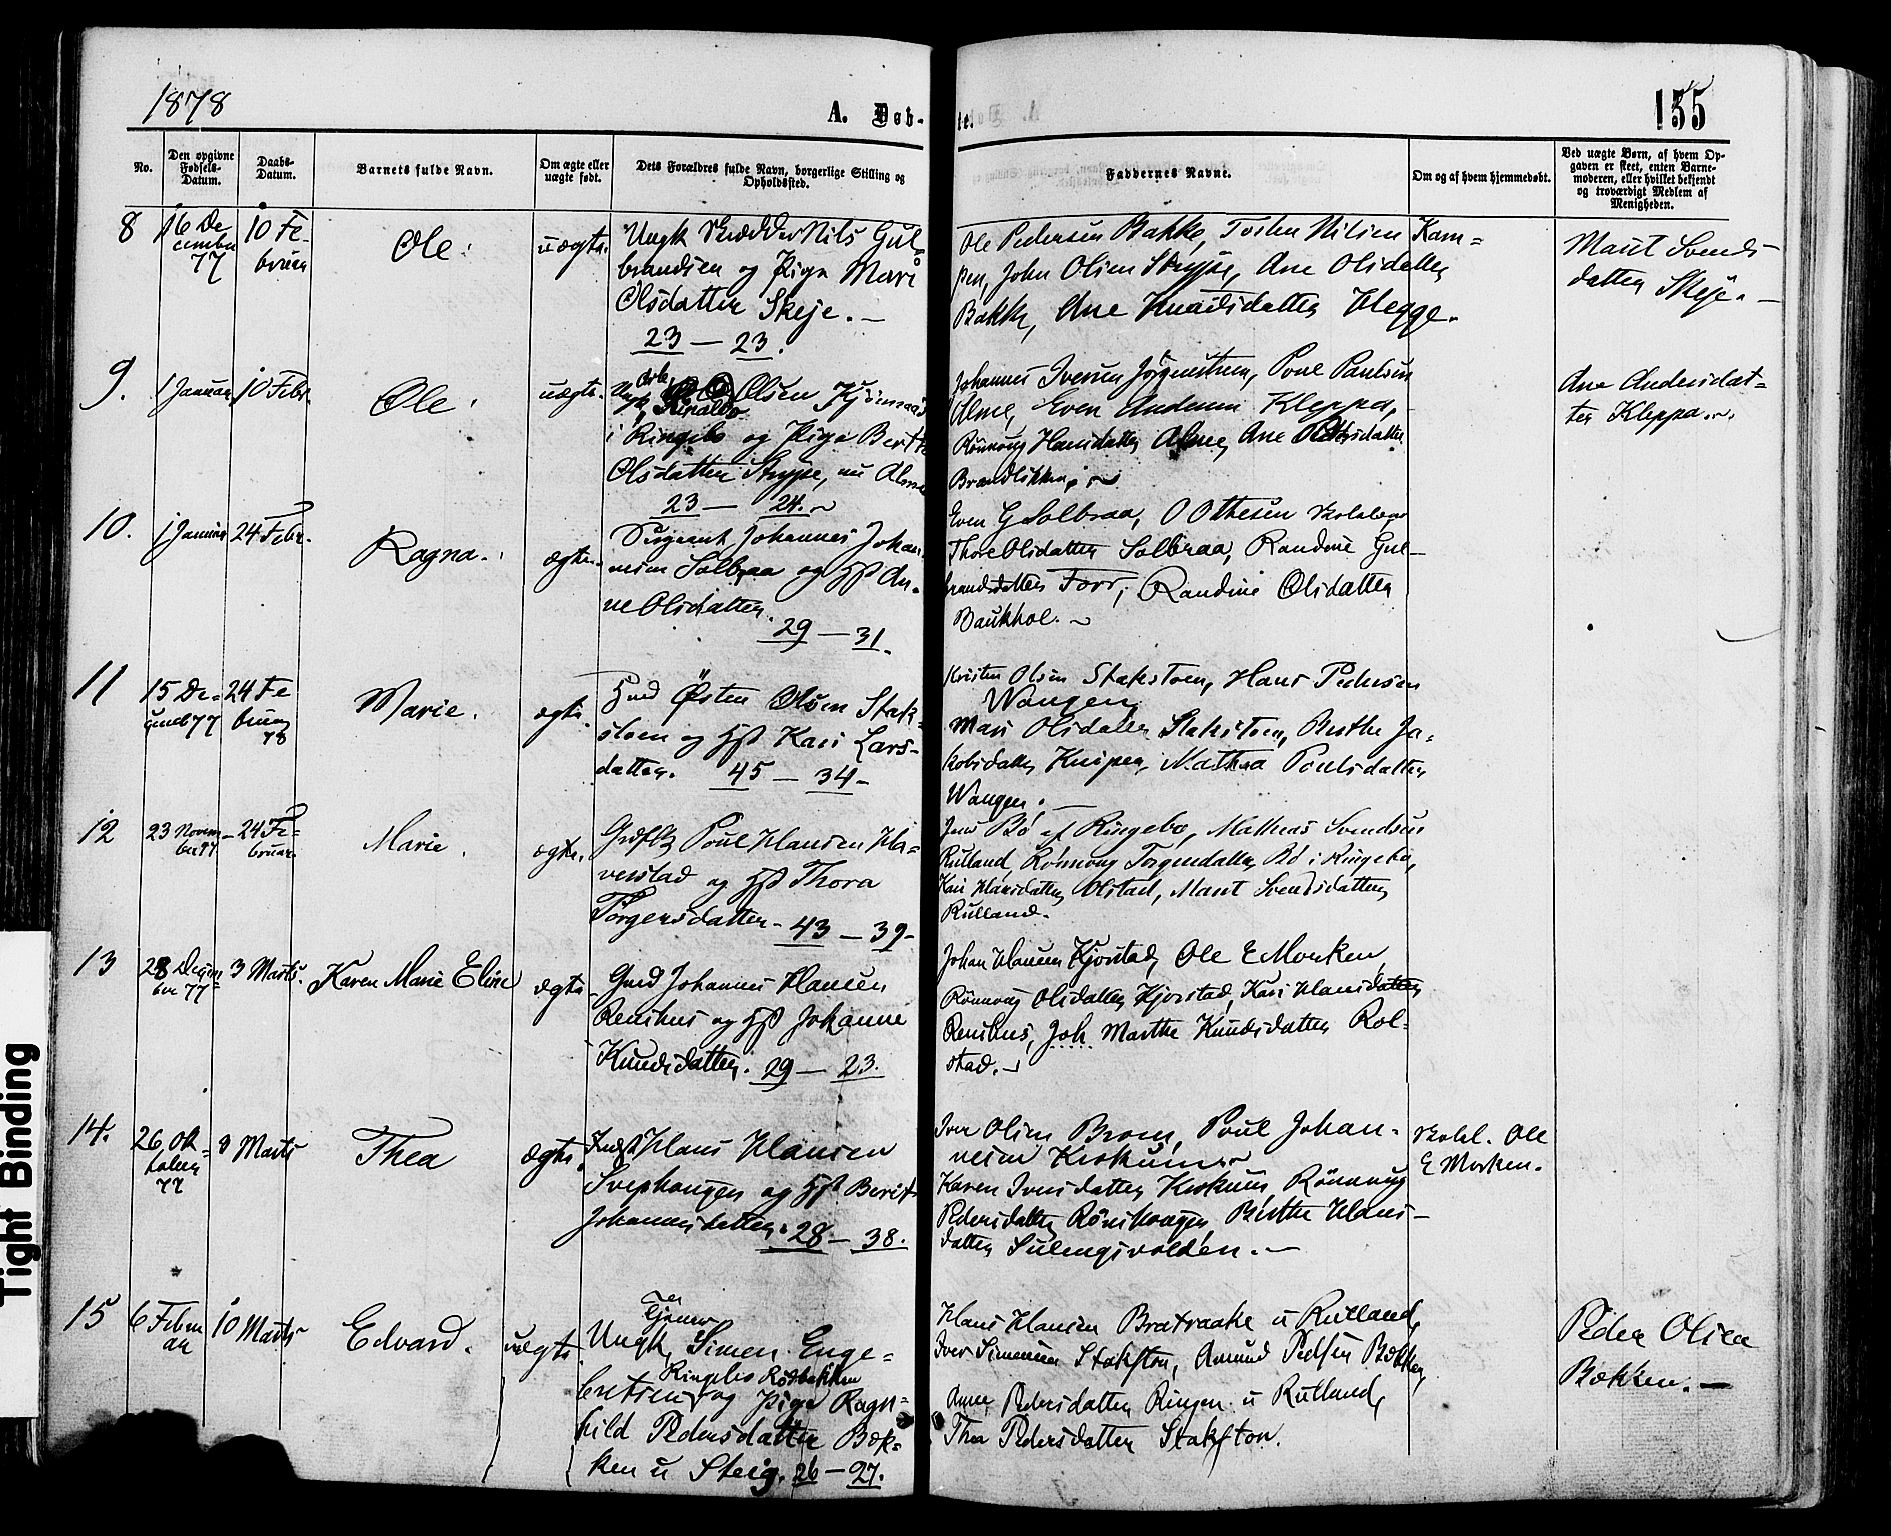 1878
A. Døb-
te.
155
No.
Den opgivne Fødsels-Datum.
Daabs-Datum.
Barnets fulde Navn.
Om ægte eller uægte født.
Dets Forældres fulde Navn, borgerlige Stilling og Opholdssted.
Faddernes Navne.
Om og af hvem hjemmedøbt.
Ved uægte Børn, af hvem Opgaven er skeet, enten Barnemoderen, eller hvilket bekjendt og troværdigt Medlem af Menigheden.
8
16 De
cember
77
10 Fe-
bruar
Ole.
uægte.
Ungk Skrædder Nils Gul-
brandsen og Pige Mari
Olsdatter Skeje. —
23 — 23.
Ole Pedersen Bakke, Nilsen Kam=
pen, John Olsen Skryse, Ane Olsdatter
Bakke, Ane Knudsdatter Hegge.
Marit Svends-
datter Skeje. —
9.
1 Januar
10 Febr.
Ole.
uægte.
Ungk Olsen
i Ringebo og Pige Berit
Olsdatter nu Alme
23 — 24.
Johannes Iversen Poul Paulsen
Alme, Even Andersen Kleppa,
Rønnoug Hansdatter Alme, Ane Pedersdatter
Ane Andersdat=
ter Kleppa.
10.
1 Januar
24 Febr.
Ragna.
ægte.
Sergeant Johannes Johan-
nesen Solbraa og Hst An-
ne Olsdatter.
29 — 31.
Even G Solbraa, O Othesen
Thore Olsdatter Solbraa, Randine Gul-
brandsdatter Forr, Randine Olsdatter
Baukhol.
11
15 De-
cembr 77
24 Fe
bruar
78
Marie.
ægte.
Østen Olsen Stak-
stoen og Hst Kari Lars-
datter. 45 — 34 -
Kristen Olsen Stakstoen, Hans Pedersen
Wangen,
Mari Olsdatter Stakstoen, Berthe Ja-
kobsdatter Knipen, Mathea Poulsdatter
Wangen. —
12
23 Novem
ber 77
24 Fe=
bruar.
Marie.
ægte.
Poul Hansen Ha-
verstad og Hst Thora
Torgersdatter - 43 — 39 -
Jens Bø af Ringebo, Mathias Svendsen
Rulland, Rønnoug Torgersdatter Bø i Ringebo,
Kari Hansdatter Olstad, Marit Svendsdatter
Rulland.
13
28 Decem
ber 77
3 Marts.
Karen Marie Eline
ægte
Gmd Johannes Hansen
Renshus og Hst Johanne
Knudsdatter. 29 — 23.
Johan Hansen Kjorstad, Ole E Morken,
Rønnoug Olsdatter Kjorstad, Kari Hansdatter
Renshus, Joh Marthe Knudsdatter Rol-
stad.
14.
26 Ok-
tober
77
3 Marts
Thea
ægte
Indst Hans Hansen
Svephaugen og Hst Berit
Johannesdatter. 28 — 38.
Iver Olsen Poul Johan-
nesen Krokum
Karen Iversdatter Krokum Rønnoug
Pedersdatter Berthe Hans-
datter
Skol. Ole
E Morken.
15
6 Febru
ar
10 Marts
Edvard.
uægte
Tjener
Ungk, Simen Enge=
Ringebo Rødbakken
bretsen og Pige Ragn=
hild Pedersdatter Bæk-
ken u Steig. 26 — 27.
Hans Hansen Bratraake u Rulland,
Iver Simensen Stakston, Amund Pedsen Bækken,
Anne Pedersdatter Ringen u Rulland,
Thea Pedersdatter Stakston.
Peder Olsen
Bækken. —
Tight Binding